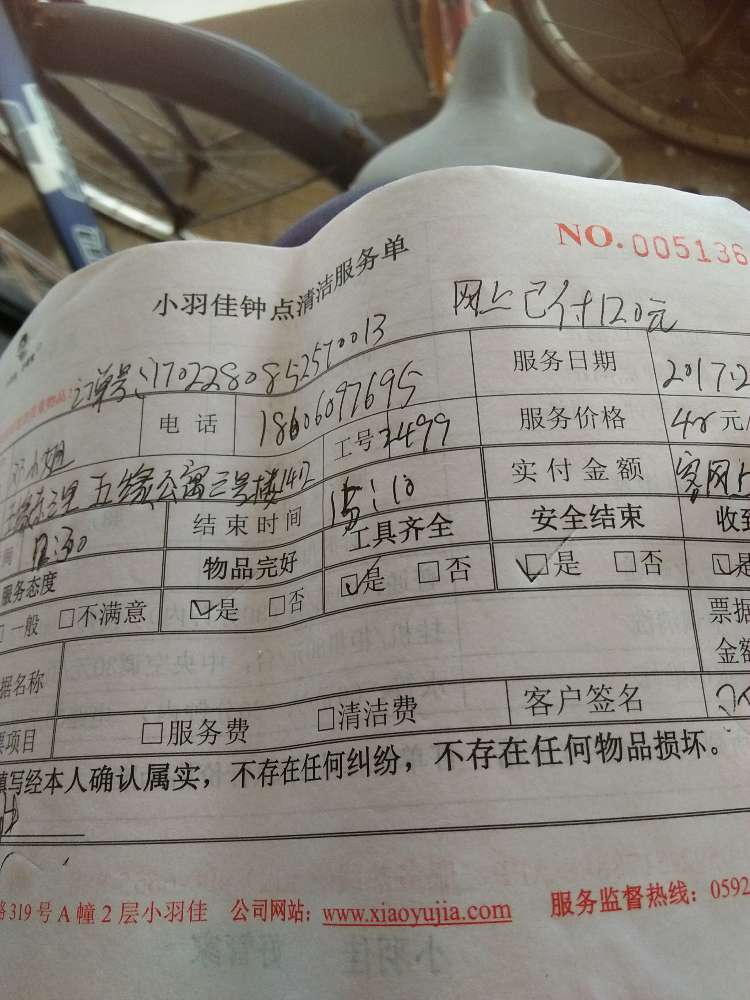 NO. 005136
小羽佳钟点清洁服务单
网上已付120元
订单号:1702280852570013
小姐 电话 18606097695 服务日期 2017.2
工号 3499 服务价格 元/
五缘公寓三号楼1402 实付金额 客网上
结束时间 :10
服务态度 物品完好 工具齐全 安全结束 收到
□一般 □不满意 ☑是 □否 ☑是 □否 ☑是 □否 ☑是
据名称 票据
金额
票项目 □服务费 □清洁费 客户签名
填写经本人确认属实,不存在任何纠纷,不存在任何物品损坏。
路319号A幢2层小羽佳 公司网站:www.xiaoyujia.com 服务监督热线:0592